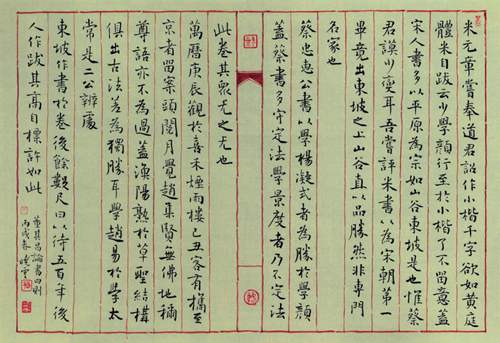 米元章嘗奉道君詔作小楷千字欲如黃庭
體米自跋云少學顏行至於小楷了不留意蓋
宋人書多以平原為宗如山谷東坡是也惟蔡
君謨少變耳吾嘗評米書以為宋朝第一
畢竟出東坡之上山谷直以品勝然非專門
名家也
蔡忠惠公書以學楊凝式者為勝於學顏
蓋蔡書多守定法學景度者乃不定法
此卷其冣尤之尤也
萬曆庚辰觀於嘉禾煙雨樓己丑客有攜至
京者留案頭閱月覺趙集賢無佛地稱
尊語亦不為過蓋漁陽熟於草聖結構
俱出古法差為獨勝耳學趙易於學太
常是二公辨處
東坡作書於卷後餘數尺曰以待五百年後
人作跋其高自標許如此
董其昌論書四則
丙戌春